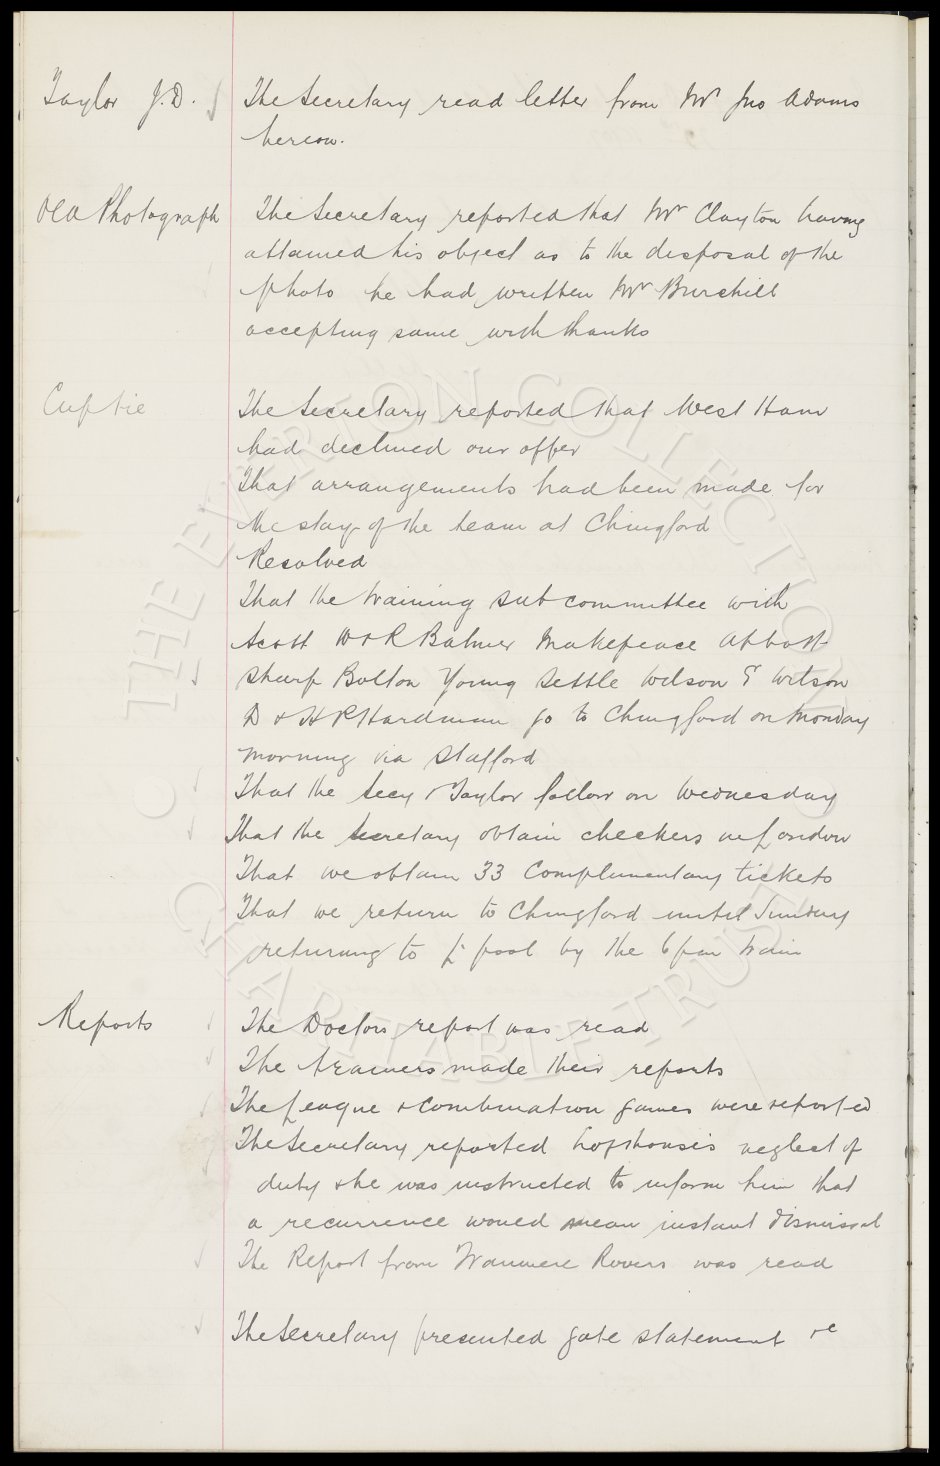 Taylor J.D.
The Secretary read letter from Mr Jno Adams
hereon.
Old Photograph
The Secretary reported that Mr Clayton having
attained his object as to the disposal of the
photo he had written Mr Burchill
accepting same with thanks
Cup tie
The Secretary reported that West Ham
had declined our offer
That arrangements had been made for
the stay of the team at Chingford
Resolved
That the training sub committee with
Scott W & R Balmer Makepeace Abbott
Sharp Bolton Young Settle Wilson G Wilson
D & H P Hardman go to Chingford on Monday
morning via Stafford
That the Secy & Taylor follow on Wednesday
That the Secretary obtain checkers in London
That we obtain 33 Complimentary tickets
That we return to Chingford until Sunday
returning to L'pool by the 6 pm train
Reports
The Doctors report was read
The trainers made their reports
The League & Combination games were reported
The Secretary reported Lofthouse's neglect of
duty & he was instructed to inform him that
a recurrence would mean instant dismissal
The Report from Tranmere Rovers was read
The Secretary presented gate statement re
© THE EVERTON COLLECTION
CHARITABLE TRUST